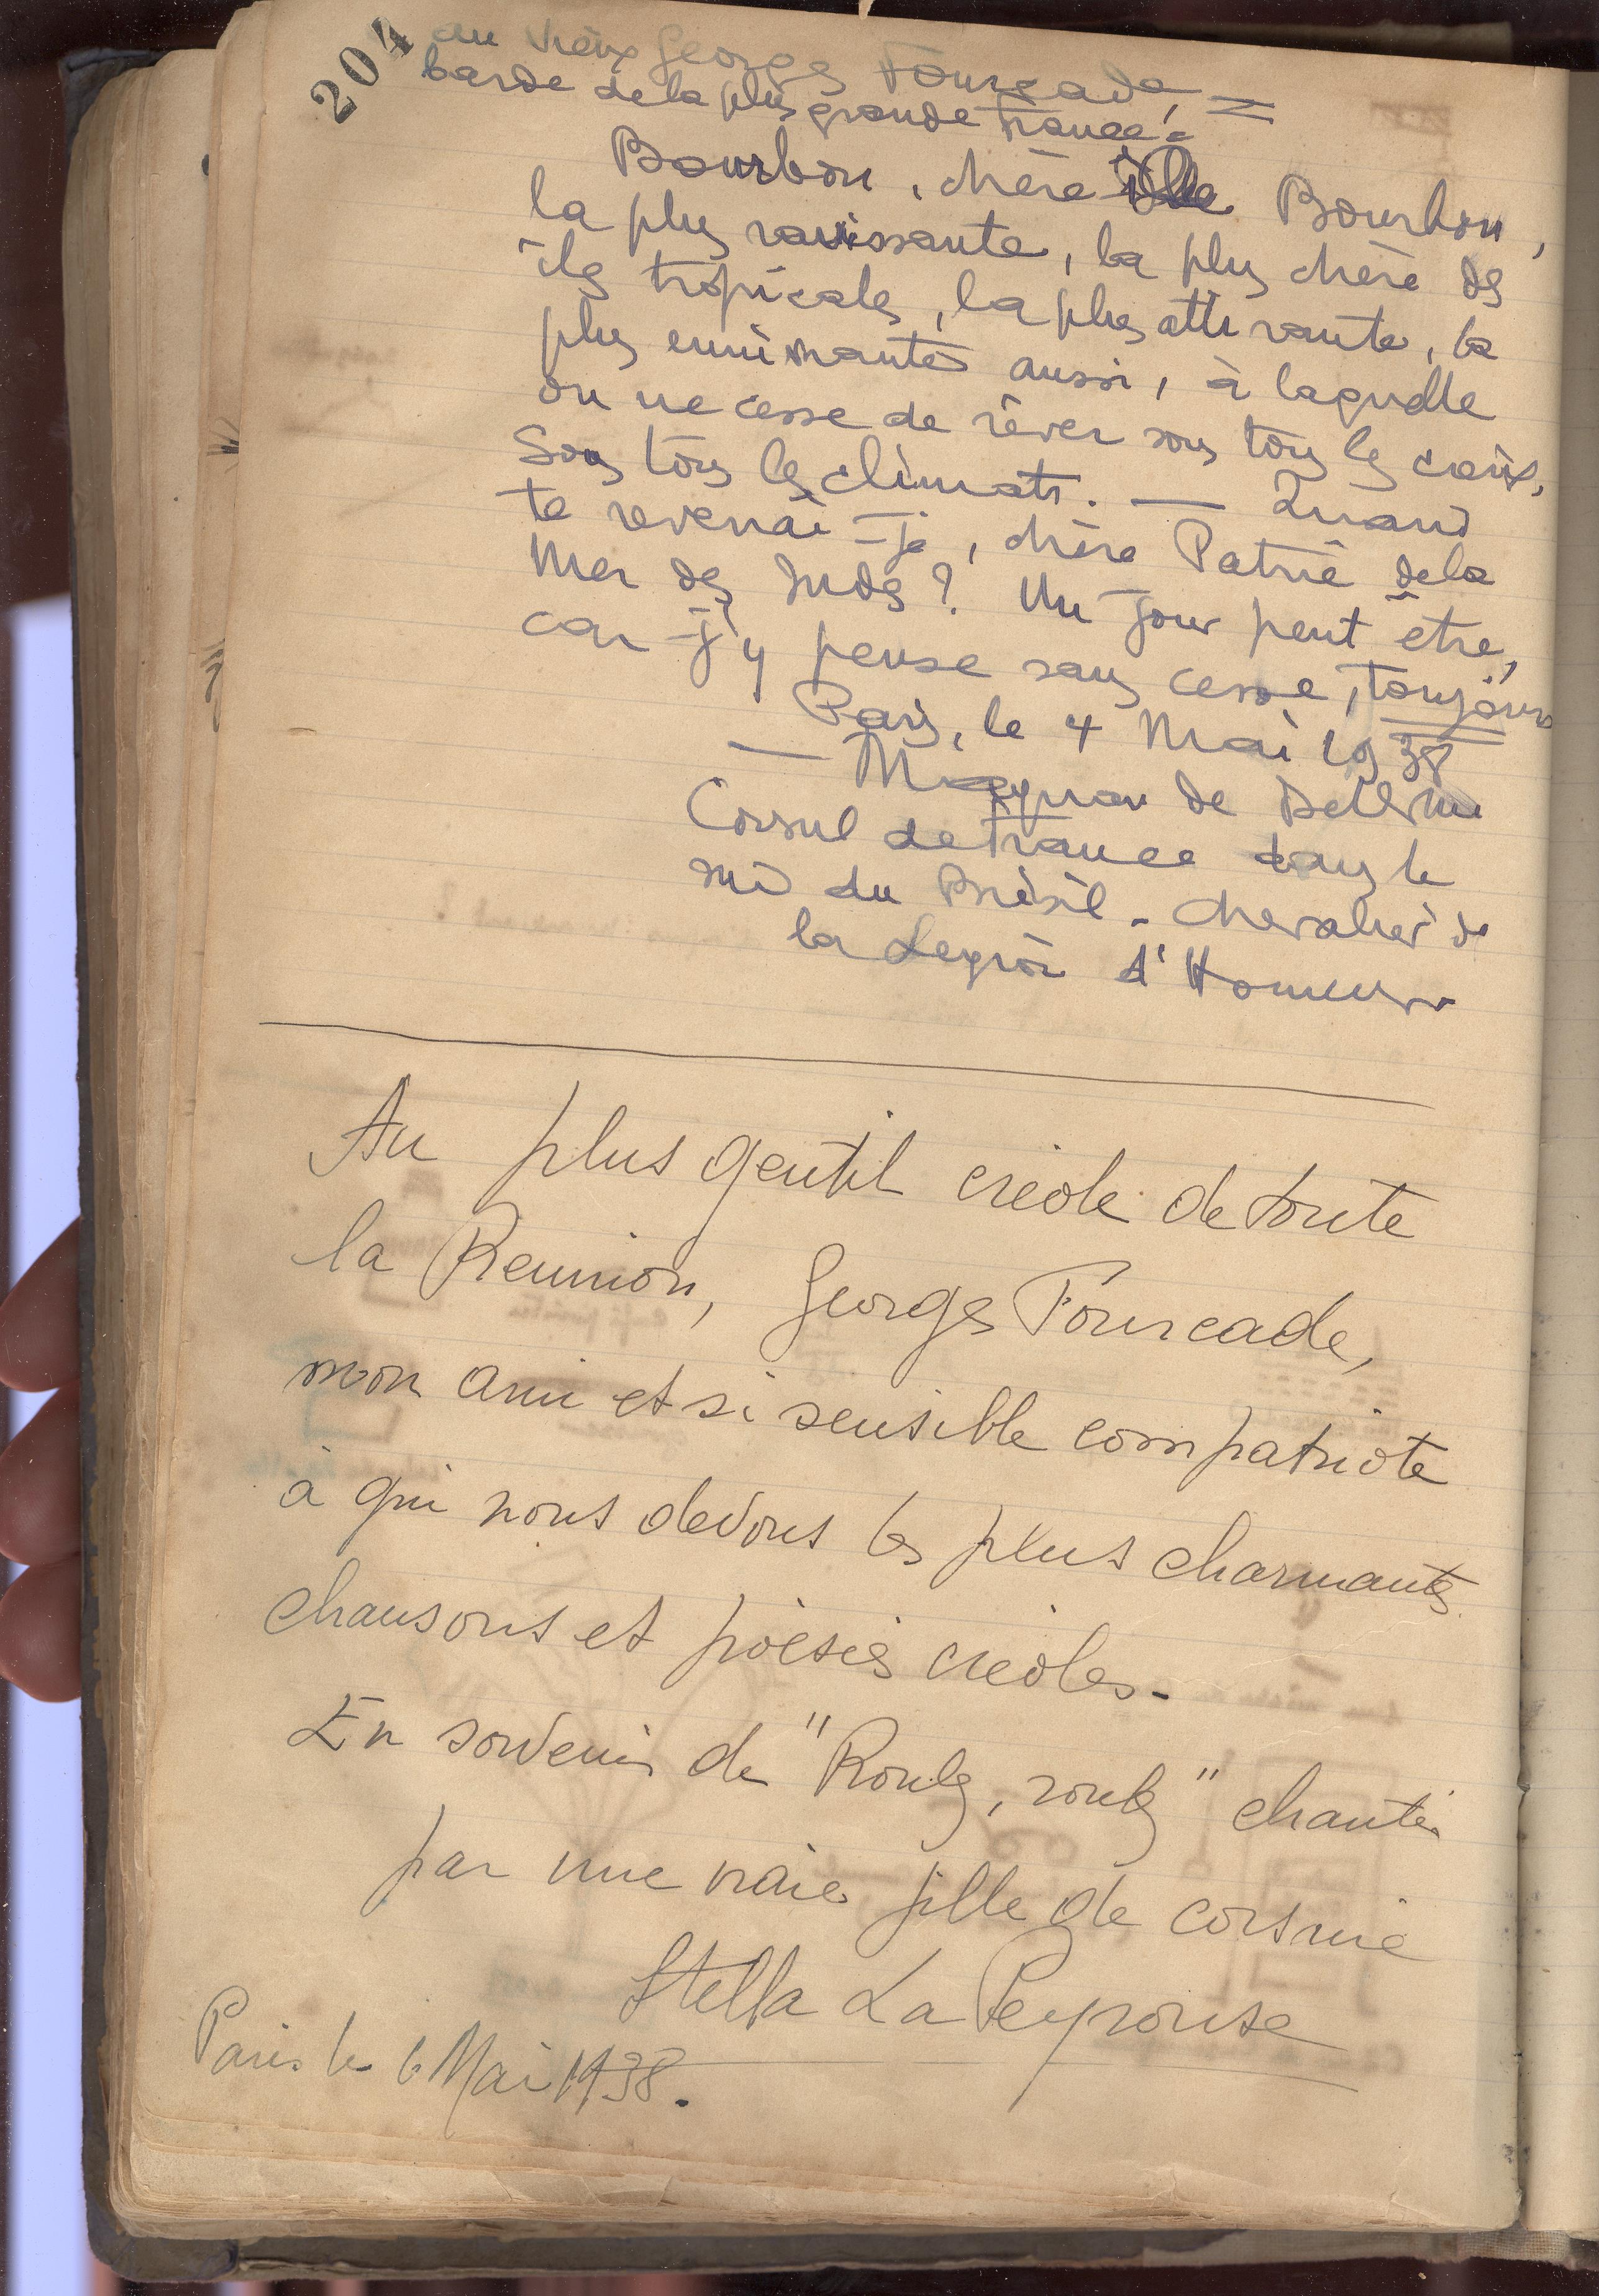 204
au vieux Georges Fourcade, =
barde de la plus grande France :
Bourbon, chère île Bourbon,
la plus ravissante, la plus chère des
îles tropicales, la plus attirante, la
plus enivrante aussi, à laquelle
on ne cesse de rêver sous tous les cieux,
sous tous les climats. — Quand
te reverrai-je, chère Patrie de la
Mer des Indes ? Un jour peut être,
car j'y pense sans cesse, toujours
Paris, le 4 Mai 1938
— de
Consul de France dans le
sud du Brésil - chevalier de
la Légion d'Honneur
Au plus gentil créole de toute
la Réunion, Georges Fourcade,
mon ami et si sensible compatriote
à qui nous devons les plus charmantes
chansons et poésies créoles.
En souvenir de "Roulez, roulez" chantée
par une vraie fille de corsaire
Stella La Peyrouse
Paris le 6 Mai 1938.